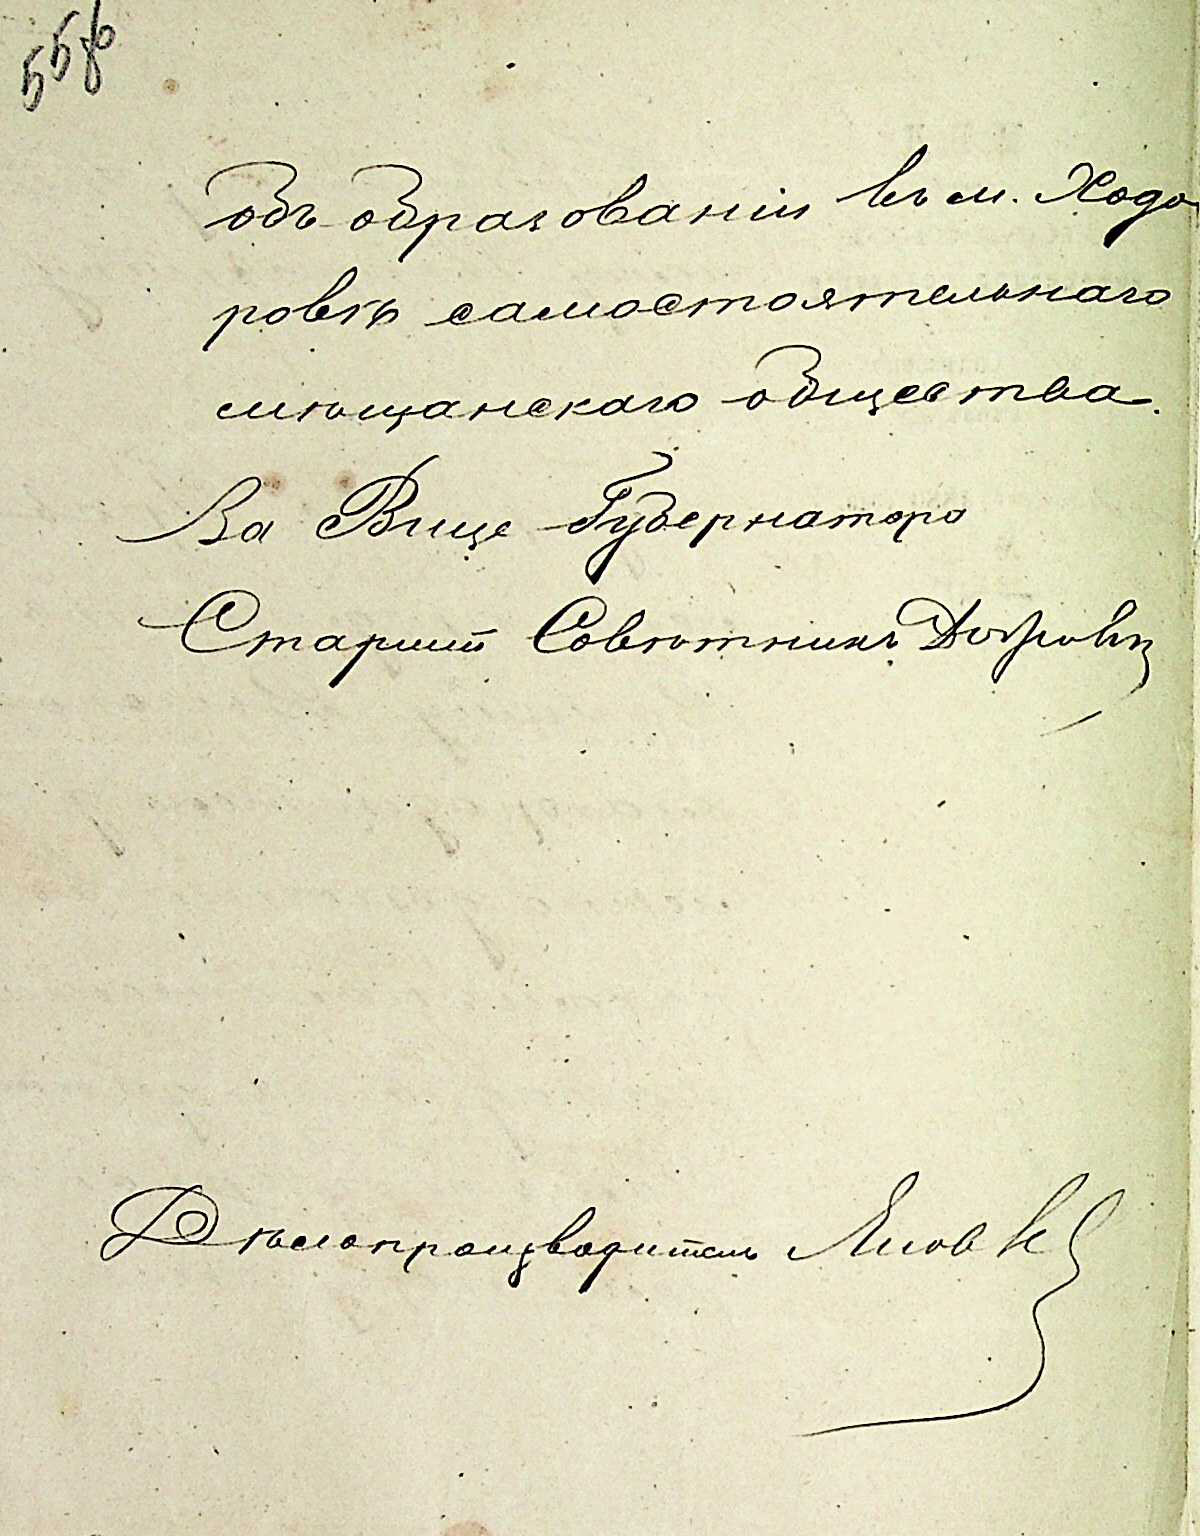 объ образованіи въ м. Ходо
ровѣ самостоятельнаго
мѣщанскаго общества.
За Вице Губернатора
Старший Совѣтникъ
Дѣлопроизводитель